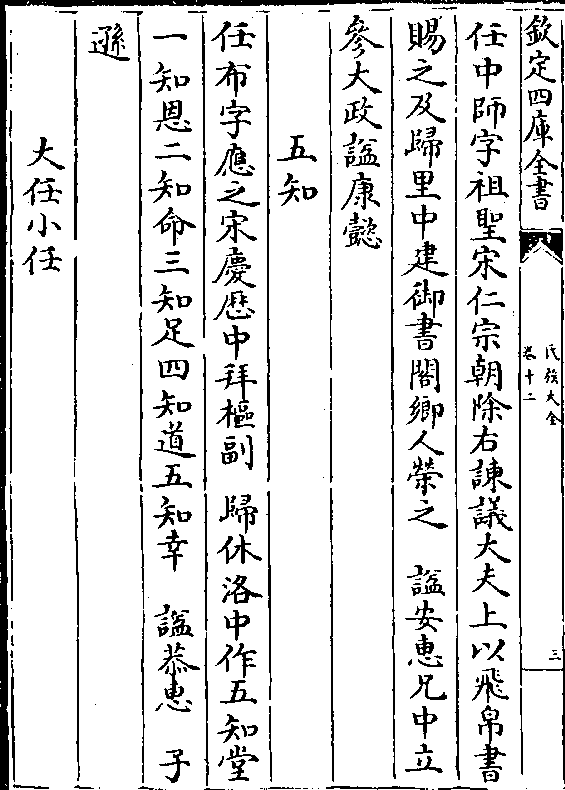 欽定四庫全書
氏族大全
卷十二
三
任中師字祖聖宋仁宗朝除右諫議大夫上以飛帛書
賜之及歸里中建御書閣鄉人榮之　諡安惠兄中立
參大政諡康懿
五知
任布字應之宋慶厯中拜樞副　歸休洛中作五知堂
一知恩二知命三知足四知道五知幸　諡恭惠　子
遜
大任小任